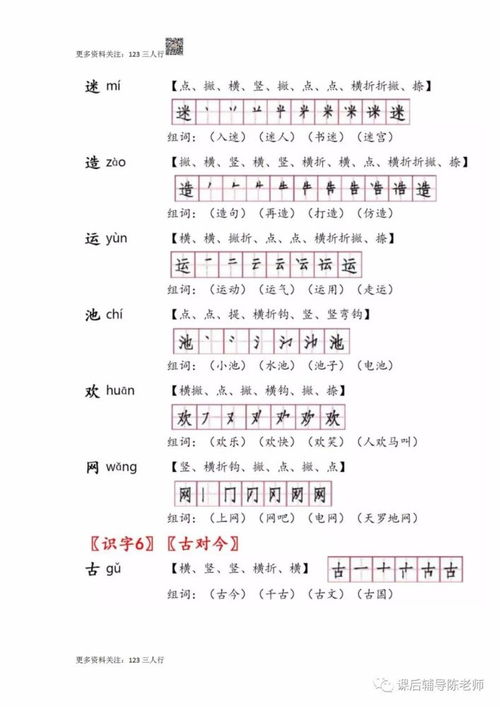 更多资料关注：123 三人行
迷 mí 【点、撇、横、竖、撇、点、点、横折折撇、捺】
迷
组词：（入迷）（迷人）（书迷）（迷宫）
造 zào 【撇、横、竖、横、竖、横折、横、点、横折折撇、捺】
造
组词：（造句）（再造）（打造）（仿造）
运 yùn 【横、横、撇折、点、点、横折折撇、捺】
运
组词：（运动）（运气）（运用）（走运）
池 chí 【点、点、提、横折钩、竖、竖弯钩】
池
组词：（小池）（水池）（池子）（电池）
欢 huān 【横撇、点、撇、横钩、撇、捺】
欢
组词：（欢乐）（欢快）（欢笑）（人欢马叫）
网 wǎng 【竖、横折钩、撇、点、撇、点】
网
组词：（上网）（网吧）（电网）（天罗地网）
〖识字6〗〖古对今〗
古 gǔ 【横、竖、竖、横折、横】 古
组词：（古今）（千古）（古文）（古国）
更多资料关注：123 三人行
课后辅导陈老师